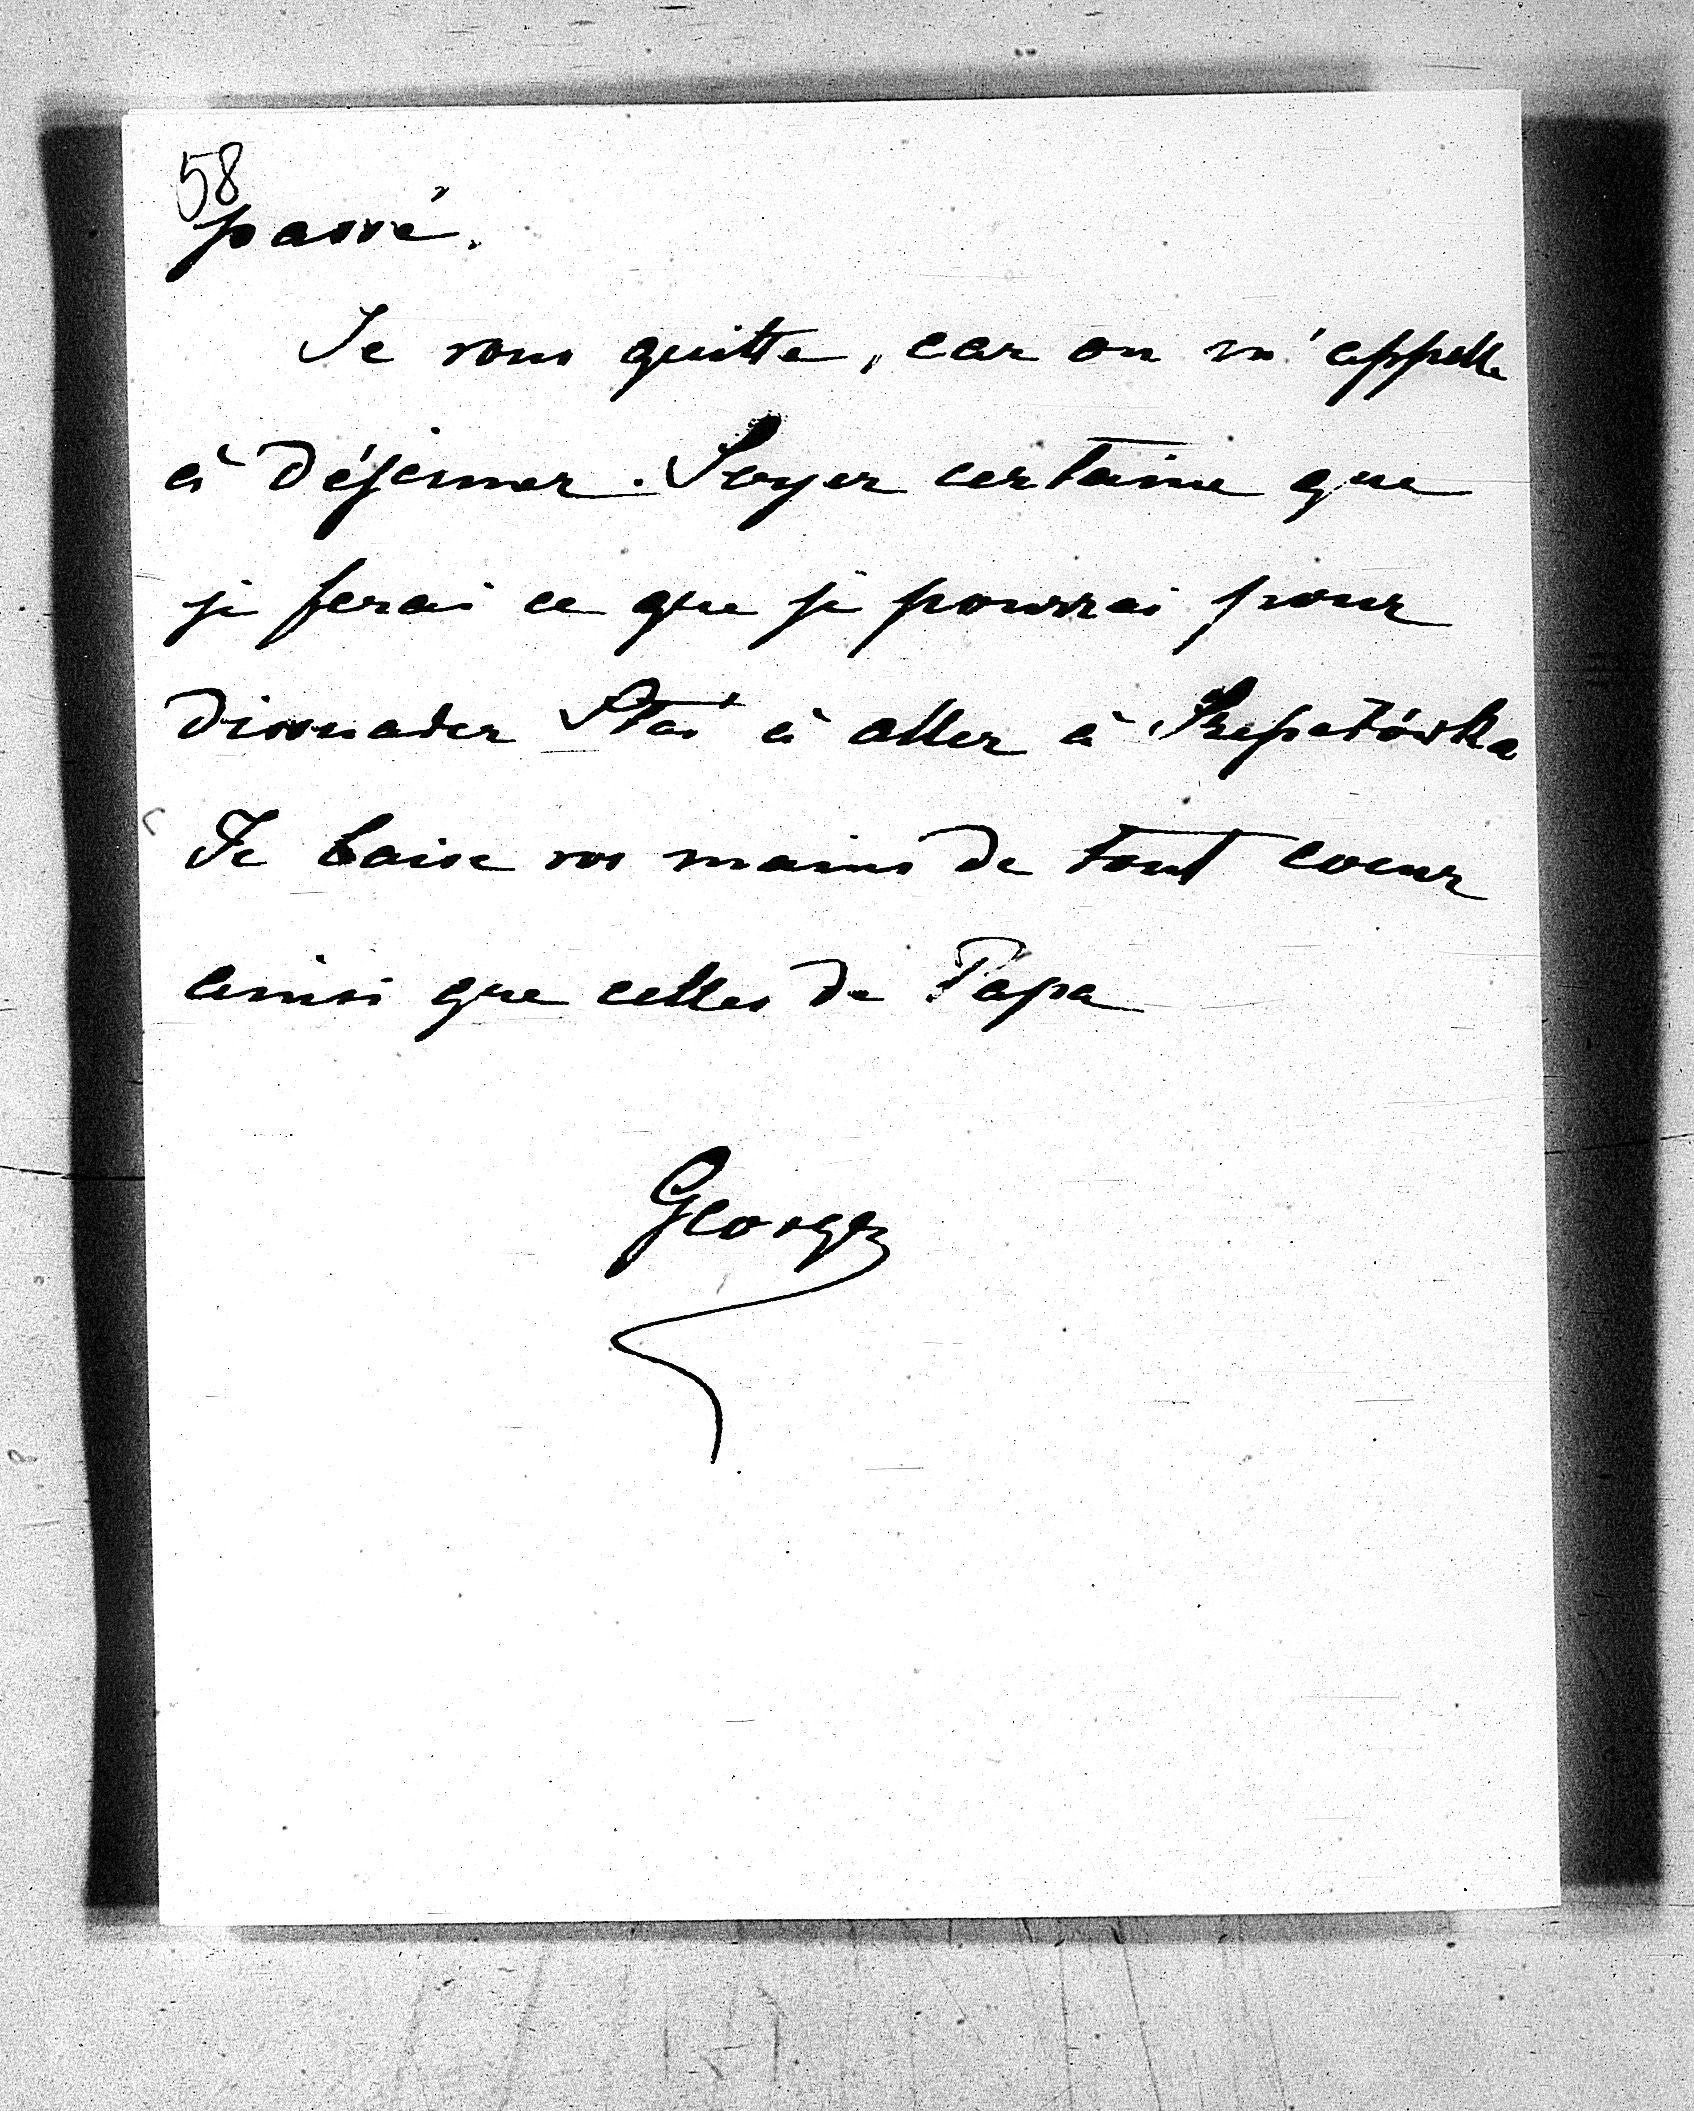 58
passé.
Je vous quitte, car on m'appelle
à déjeuner. Soyez certaine que
je ferai ce que je pourrai pour
dissuader Staś à aller à Szepetówka
Je baise vos mains de tout coeur
ainsi que celles de Papa
Georges